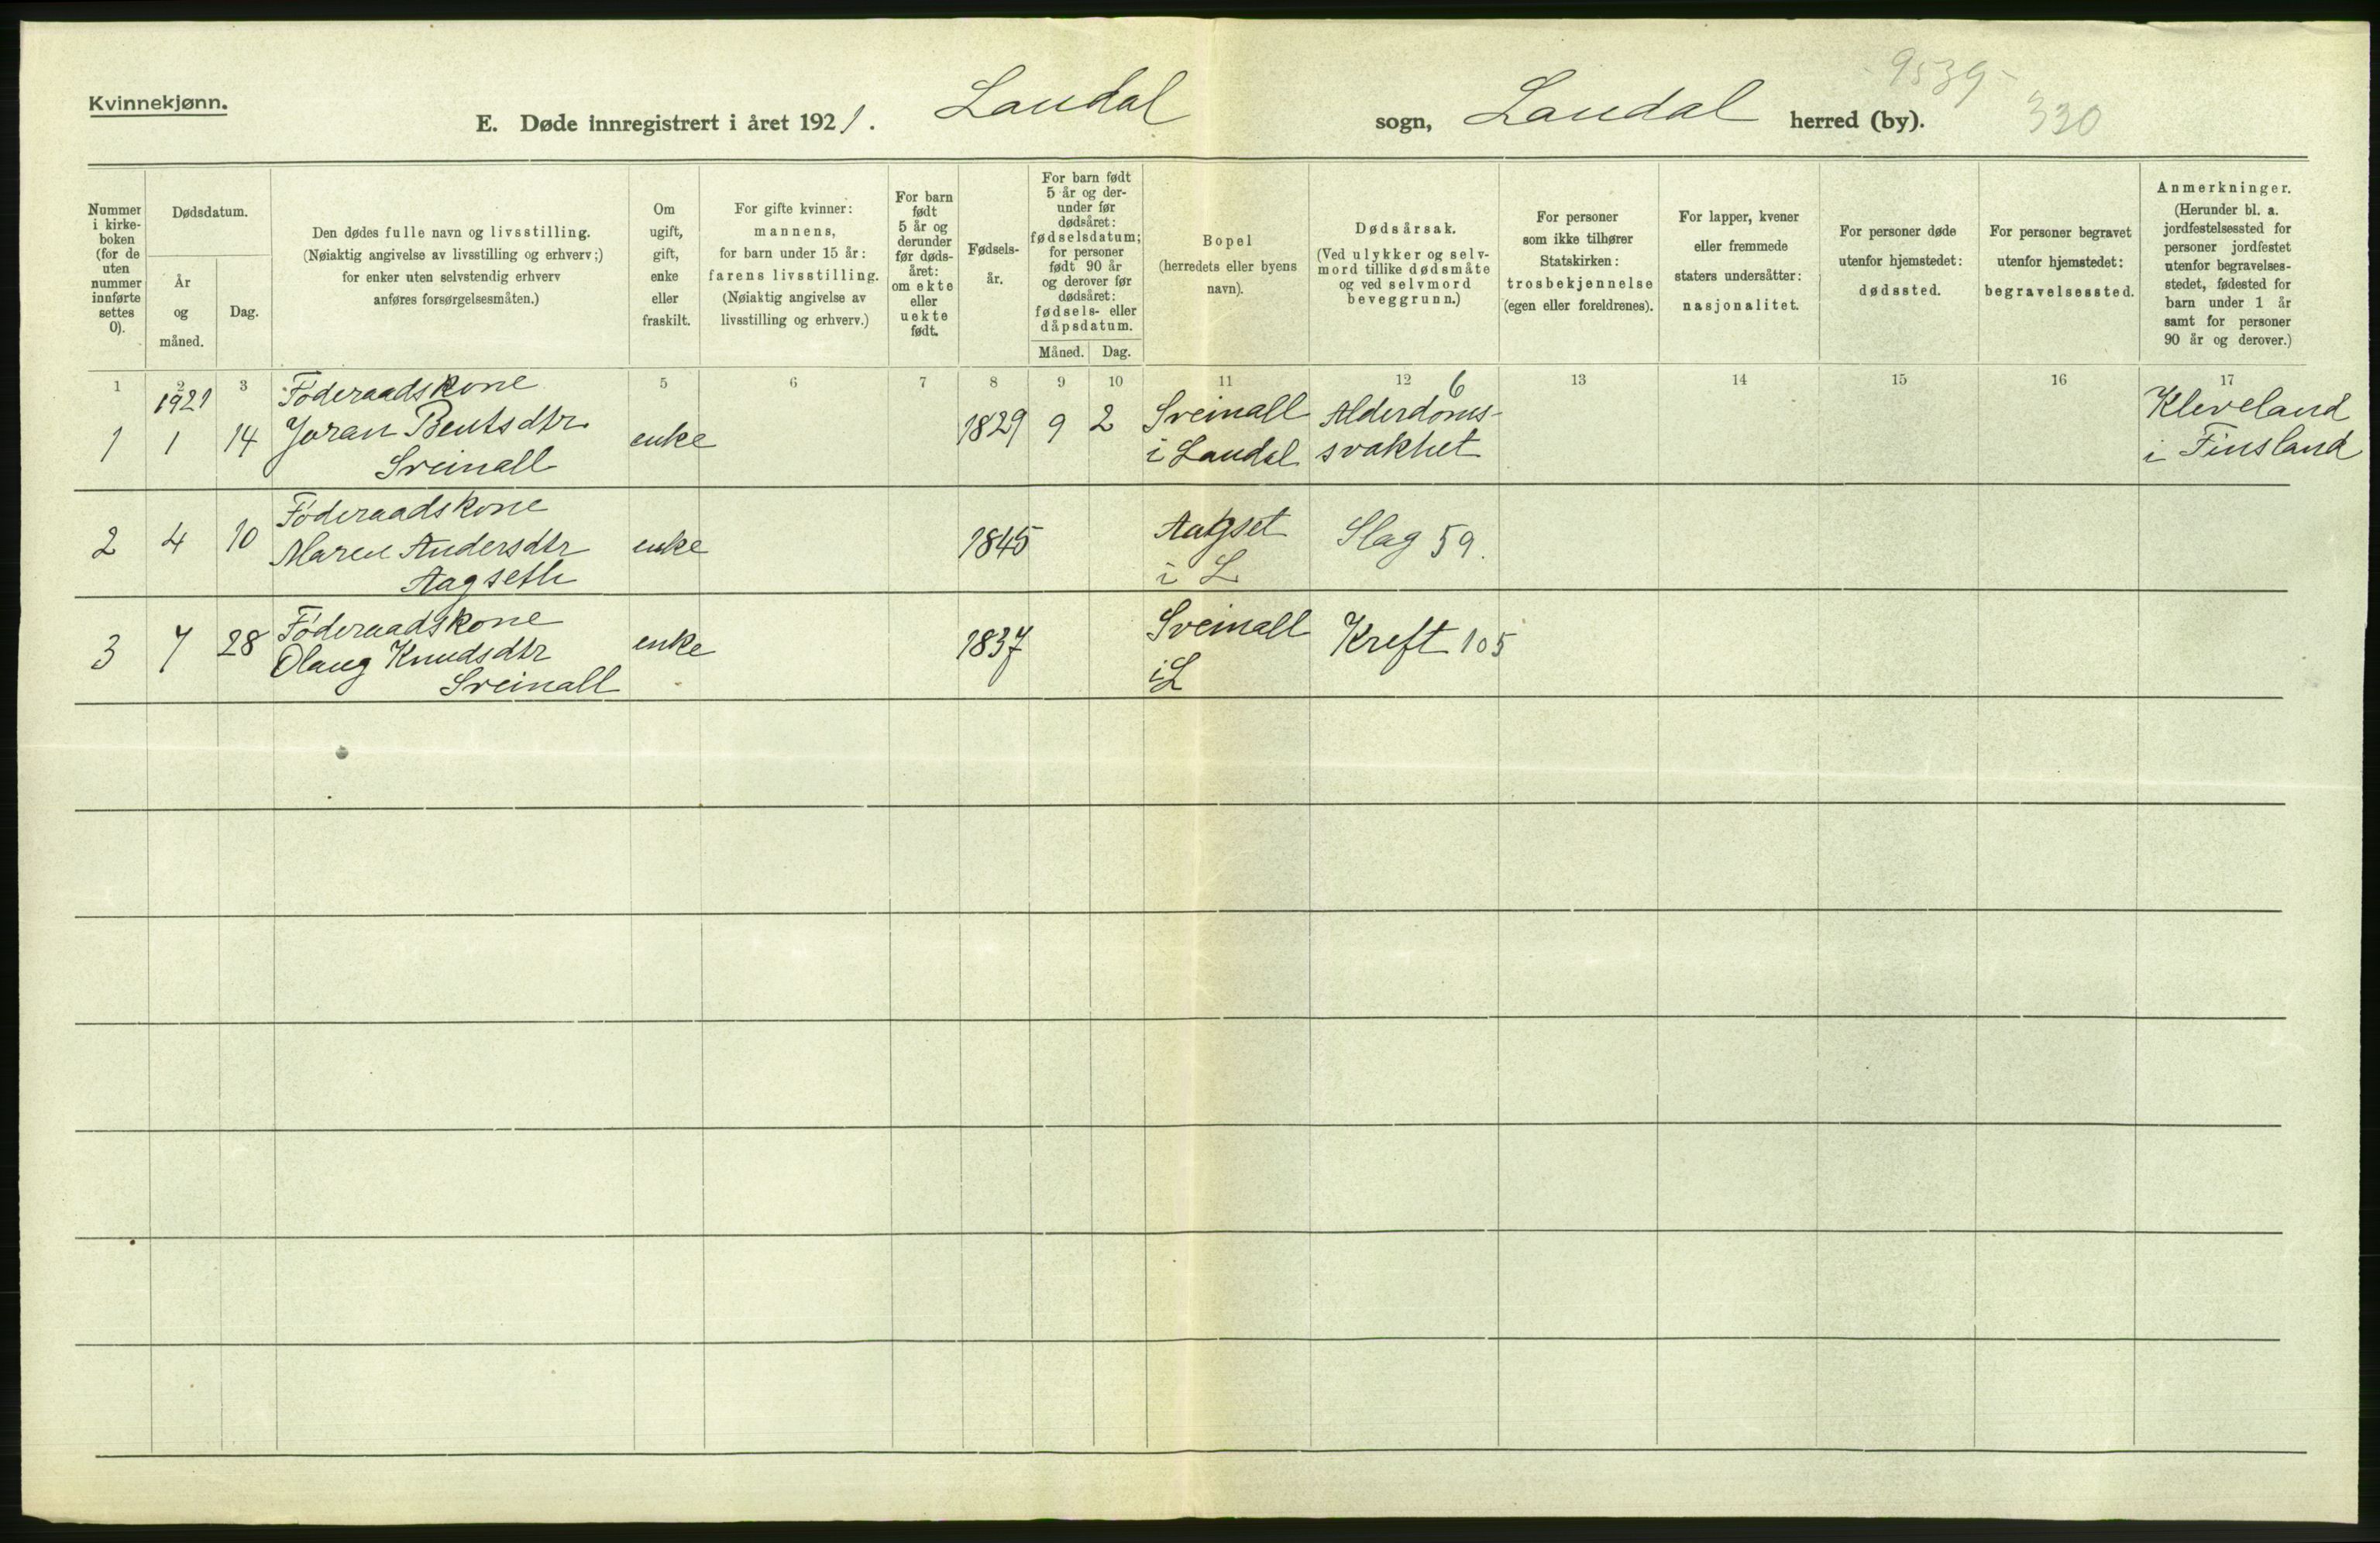 Kvinnekjønn.
E. Døde innregistrert i året 1921. Laudal sogn, Laudal herred (by).
9539
330
Nummer i kirke-boken (for de uten nummer innførte settes 0).
Dødsdatum.
År og måned.
Dag.
Den dødes fulle navn og livsstilling.
(Nøiaktig angivelse av livsstilling og erhverv;)
for enker uten selvstendig erhverv
anføres forsørgelsesmåten.)
Om
ugift,
gift,
enke
eller
fraskilt.
For gifte kvinner:
mannens,
for barn under 15 år:
farens livsstilling.
(Nøiaktig angivelse av
livsstilling og erhverv.)
For barn
født
5 år og
derunder
før døds-
året:
om ekte
eller
uekte
født.
Fødsels-
år.
For barn født
5 år og der-
under før
dødsåret:
fødselsdatum;
for personer
født 90 år
og derover før
dødsåret:
fødsels- eller
dåpsdatum.
Måned. Dag.
Bopel
(herredets eller byens
navn).
Dødsårsak.
(Ved ulykker og selv-
mord tillike dødsmåte
og ved selvmord
beveggrunn.)
For personer
som ikke tilhører
Statskirken:
trosbekjennelse
(egen eller foreldrenes).
For lapper, kvener
eller fremmede
staters undersåtter:
nasjonalitet.
For personer døde
utenfor hjemstedet:
dødssted.
For personer begravet
utenfor hjemstedet:
begravelsessted.
Anmerkninger.
(Herunder bl. a.
jordfestelsessted for
personer jordfestet
utenfor begravelses-
stedet, fødested for
barn under 1 år
samt for personer
90 år og derover.)
1 2 3 5 6 7 8 9 10 11 12 13 14 15 16 17
1921 Föderaadskone 6 Kleveland
1 1 14 Joran Bentsdtr enke 1829 9 2 Sveinall Alderdoms- i Finsland
Sveinall i Laudal svakhet
Föderaadskone
2 4 10 Maren Andersdtr enke 1845 Aagset Slag 59.
Aagseth i L
Föderaadskone
3 7 28 Olaug Knudsdtr enke 1837 Sveinall Kreft 105
Sveinall i L